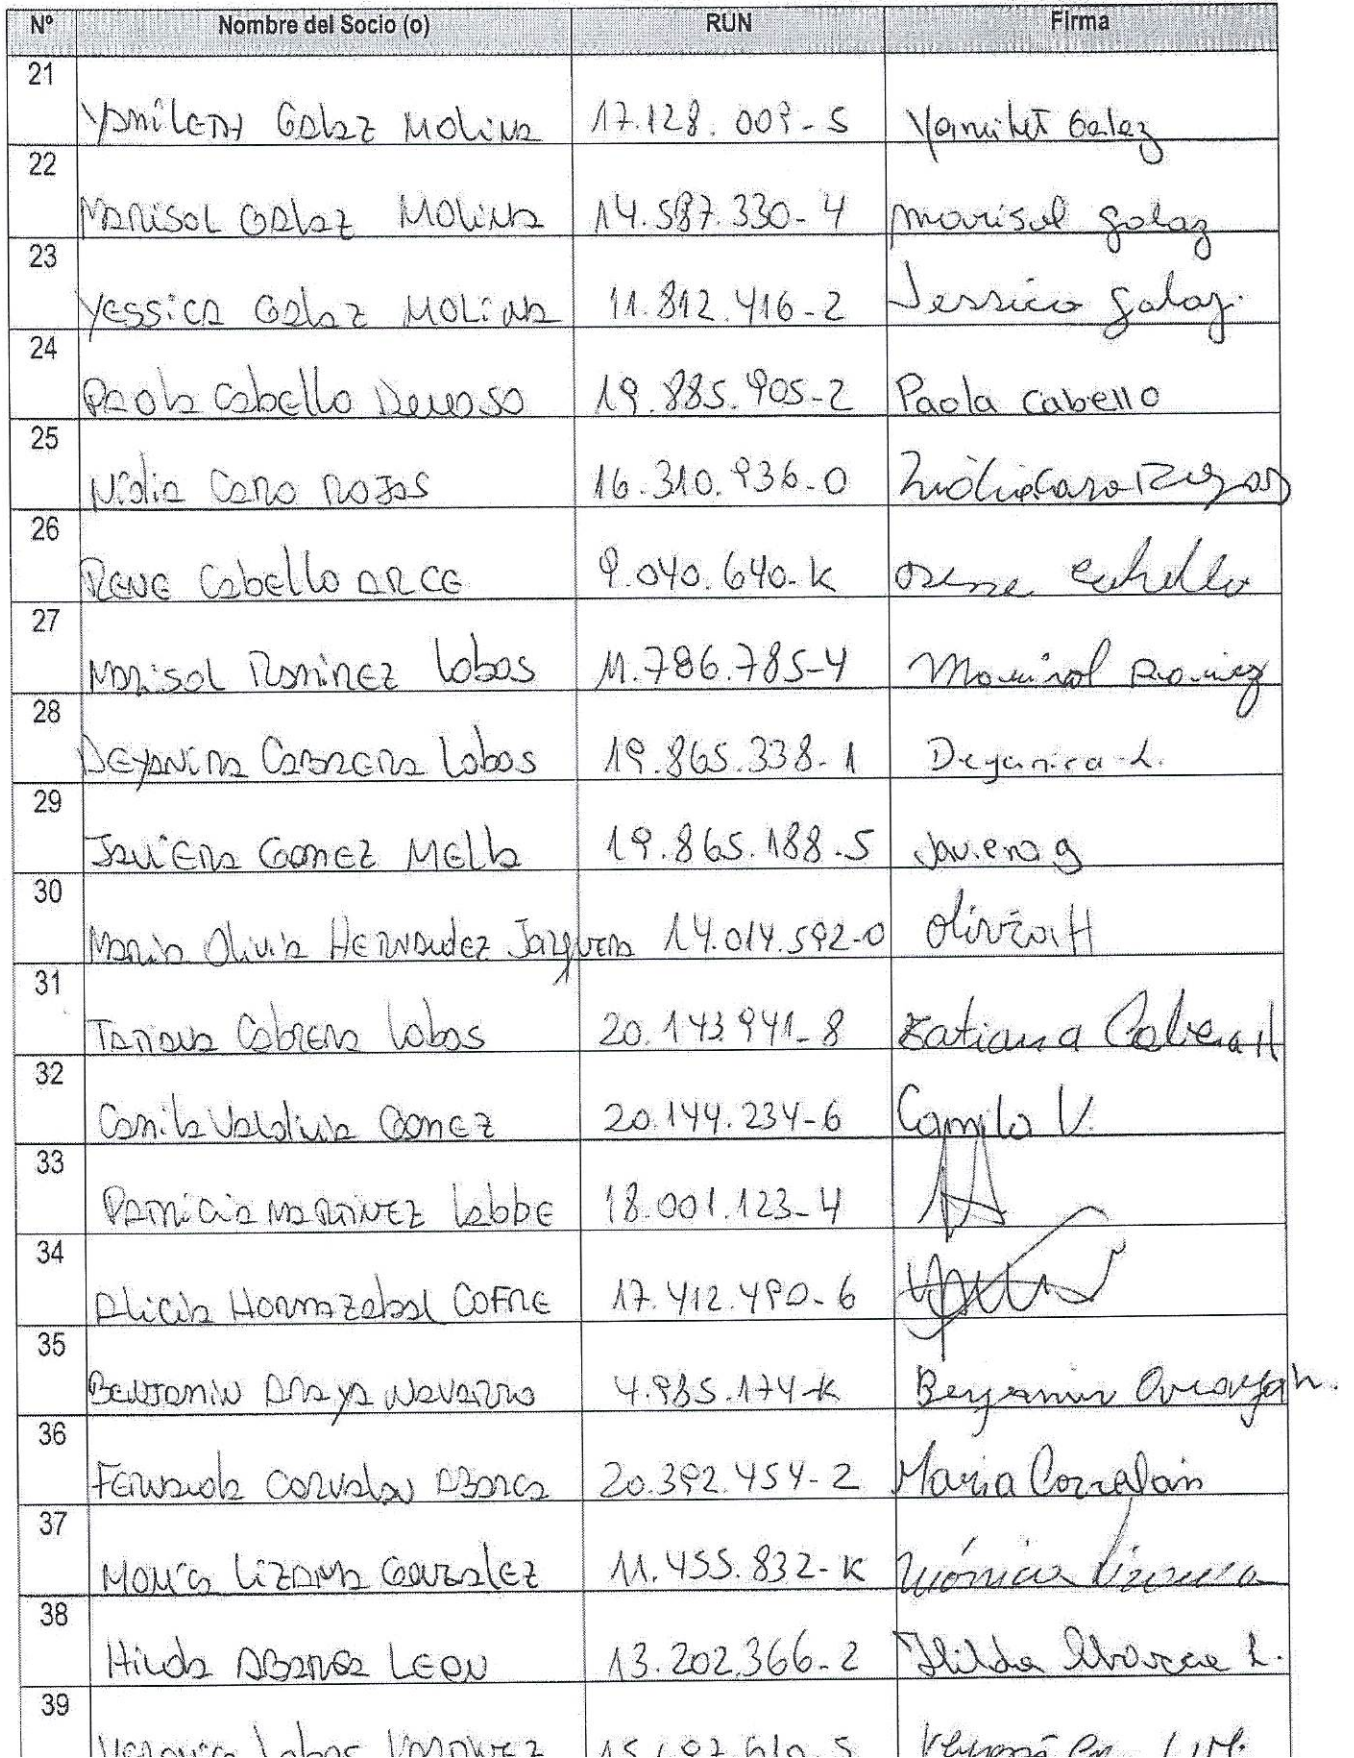 Nº Nombre del Socio (o) RUN Firma
21 Yamilett Galaz Molina 17.128.009-5 Yamilet Galaz
22 Marisol Galaz Molina 14.587.330-4 Marisol Galaz
23 Yessica Galaz Molina 11.812.416-2 Jessica Galaz.
24 Paola Cabello Donoso 19.885.905-2 Paola Cabello
25 Nidia Caro Rojas 16.310.936-0 Nidia Caro Rojas
26 Rene Cabello Arce 9.040.640-K Rene Cabello
27 Marisol Ramirez Lobos 11.786.785-4 Marisol Ramirez
28 Deyanira Cabrera Lobos 19.865.338-1 Deyanira L.
29 Javiera Gomez Mella 19.865.188-5 Javiera g
30 Maria Olivia Hernandez Jazquera 14.014.592-0 Olivia H
31 Tatiana Cabrera Lobos 20.143.941-8 Tatiana
32 Camila Valdivia Gomez 20.144.234-6 Camila V.
33 Patricia Martinez Labbe 18.001.123-4
34 Alicia Hormazabal Cofre 17.412.490-6
35 Benjamin Araya Navarro 4.985.174-K Benjamin Araya N.
36 Fernanda Corvalan Abarca 20.392.454-2 Maria Corvalan
37 Monica Lizama Gonzalez 11.455.832-K Mónica Lizama
38 Hilda Abarca Leon 13.202.366-2 Hilda Abarca L.
39 Veronica Lobos